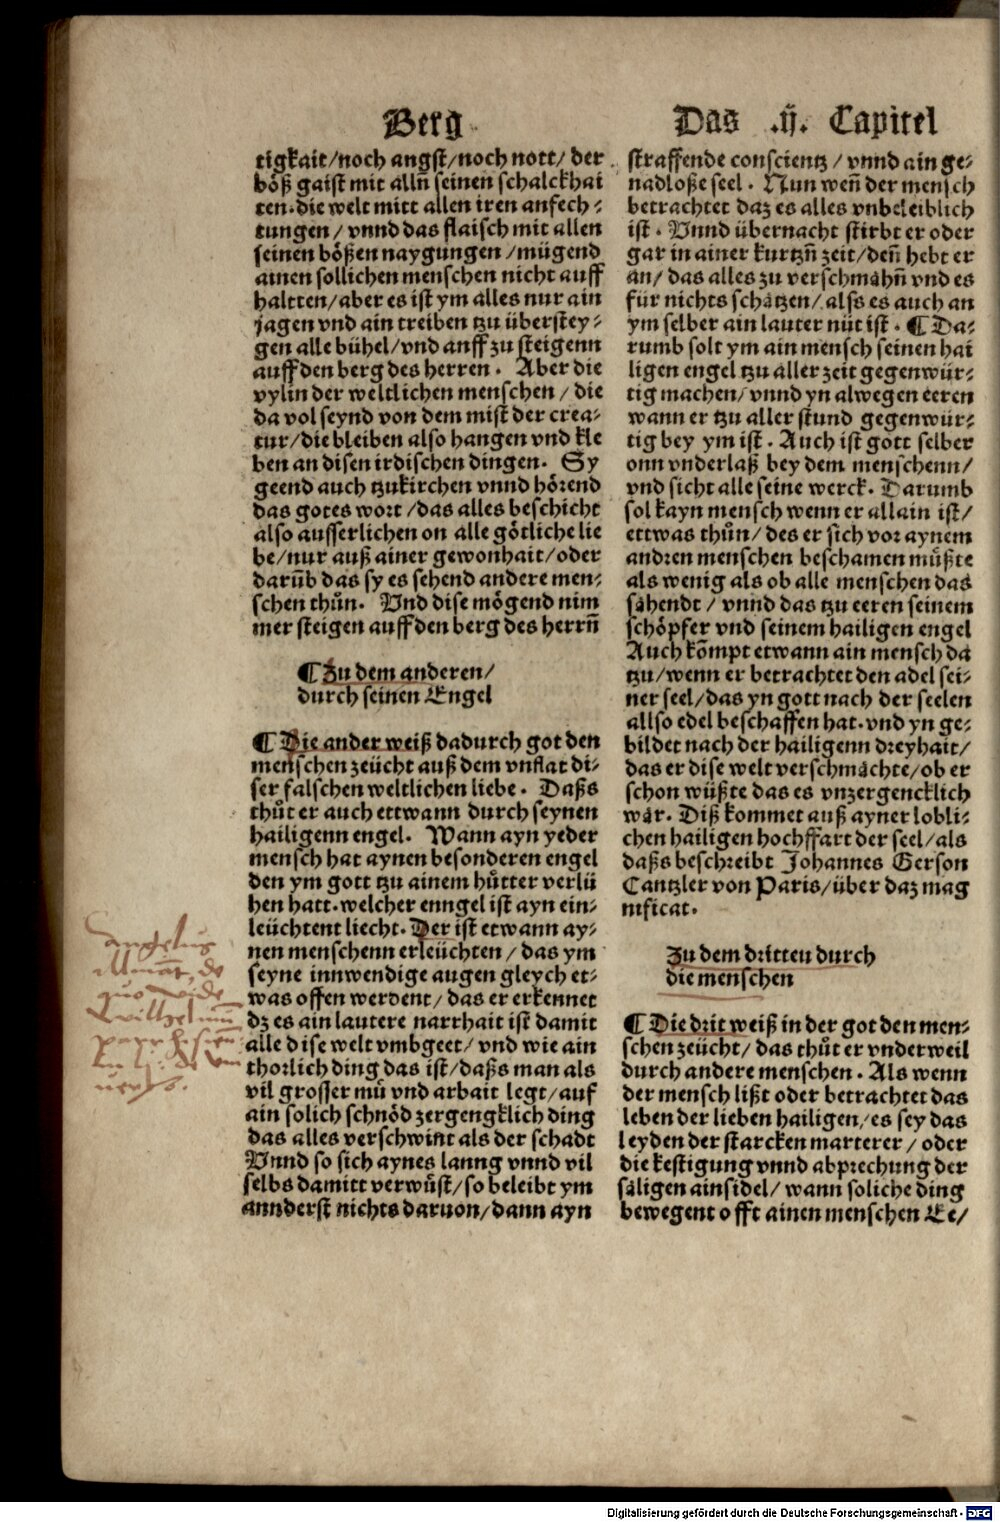 Berg
tigkait/noch angst/noch nott/ der
böß gaist mit allñ seinen schalckhai
ten. die welt mitt allen iren anfech⸗
tungen/ vnnd das flaisch mit allen
seinen bößen naygungen/mügend
ainen sollichen menschen nicht auff
haltten/aber es ist ym alles nur ain
jagen vnd ain treiben tzu überstey⸗
gen alle bühel/vnd anff zu steigenn
auff den berg des herren. Aber die
vylin der weltlichen menschen/ die
da vol seynd von dem mist der crea⸗
tur/die bleiben also hangen vnd kle
ben an disen irdischen dingen. Sy
geend auch tzukirchen vnnd hörend
das gotes wort/das alles beschicht
also ausserlichen on alle götliche lie
be/nur auß ainer gewonhait/oder
darūb das sy es sehend andere men⸗
schen thůn. Vnd dise mögend nim
mer steigen auff den berg des herrñ
¶ Zu dem anderen/
durch seinen Engel
¶ Die ander weiß dadurch got den
menschen zeücht auß dem vnflat di⸗
ser falschen weltlichen liebe. Daßs
thůt er auch ettwann durch seynen
hailigenn engel. Wann ayn yeder
mensch hat aynen besonderen engel
den ym gott tzu ainem hůtter verlü
hen hatt. welcher enngel ist ayn ein⸗
leüchtent liecht. Der ist etwann ay⸗
nen menschenn erleüchten/ das ym
seyne innwendige augen gleych et⸗
was offen werdent/das er erkennet
dz es ain lautere narrhait ist damit
alle dise welt vmbgeet/vnd wie ain
thorlich ding das ist/daßs man als
vil grosser mů vnd arbait legt/auf
ain solich schnöd zergengklich ding
das alles verschwint als der schadt
Vnnd so sich aynes lanng vnnd vil
selbs damitt verwůst/so beleibt ym
annderst nichts daruon/dann ayn
angelus
de
quo vide
Das .ij. Capitel
straffende conscientz/vnnd ain ge⸗
nadloße seel. Nun weñ der mensch
betrachtet daz es alles vnbeleiblich
ist. Vnnd übernacht stirbt er oder
gar in ainer kurtzñ zeit/deñ hebt er
an/das alles zu verschmahñ vnd es
für nichts schätzen/alss es auch an
ym selber ain lauter nüt ist. ¶ Da⸗
rumb solt ym ain mensch seinen hai
ligen engel tzu aller zeit gegenwür⸗
tig machen/vnnd yn alwegen eeren
wann er tzu aller stund gegenwür⸗
tig bey ym ist. Auch ist gott selber
onn vnderlaß bey dem menschenn/
vnd sicht alle seine werck. Darumb
sol kayn mensch wenn er allain ist/
ettwas thůn/des er sich vor aynem
andren menschen beschamen můßte
als wenig als ob alle menschen das
sähendt/vnnd das tzu eeren seinem
schöpfer vnd seinem hailigen engel
Auch kōmpt etwann ain mensch da
tzu/wenn er betrachtet den adel sei⸗
ner seel/das yn gott nach der seelen
allso edel beschaffen hat. vnd yn ge⸗
bildet nach der hailigenn dreyhait/
das er dise welt verschmächte/ob er
schon wüßte das es vnzergencklich
wär. Diß kommet auß ayner lobli⸗
chen hailigen hochffart der seel/als
daßs beschreibt Johannes Gerson
Cantzler von Paris/über daz mag
nificat.
Zu dem dritten durch
die menschen
¶ Die drit weiß in der got den men⸗
schen zeücht/das thůt er vnderweil
durch andere menschen. Als wenn
der mensch lißt oder betrachtet das
leben der lieben hailigen/es sey das
leyden der starcken marterer/oder
die kestigung vnnd abprechung der
säligen ainsidel/wann soliche ding
bewegent offt ainen menschen Ee/
Digitalisierung gefördert durch die Deutsche Forschungsgemeinschaft - DFG